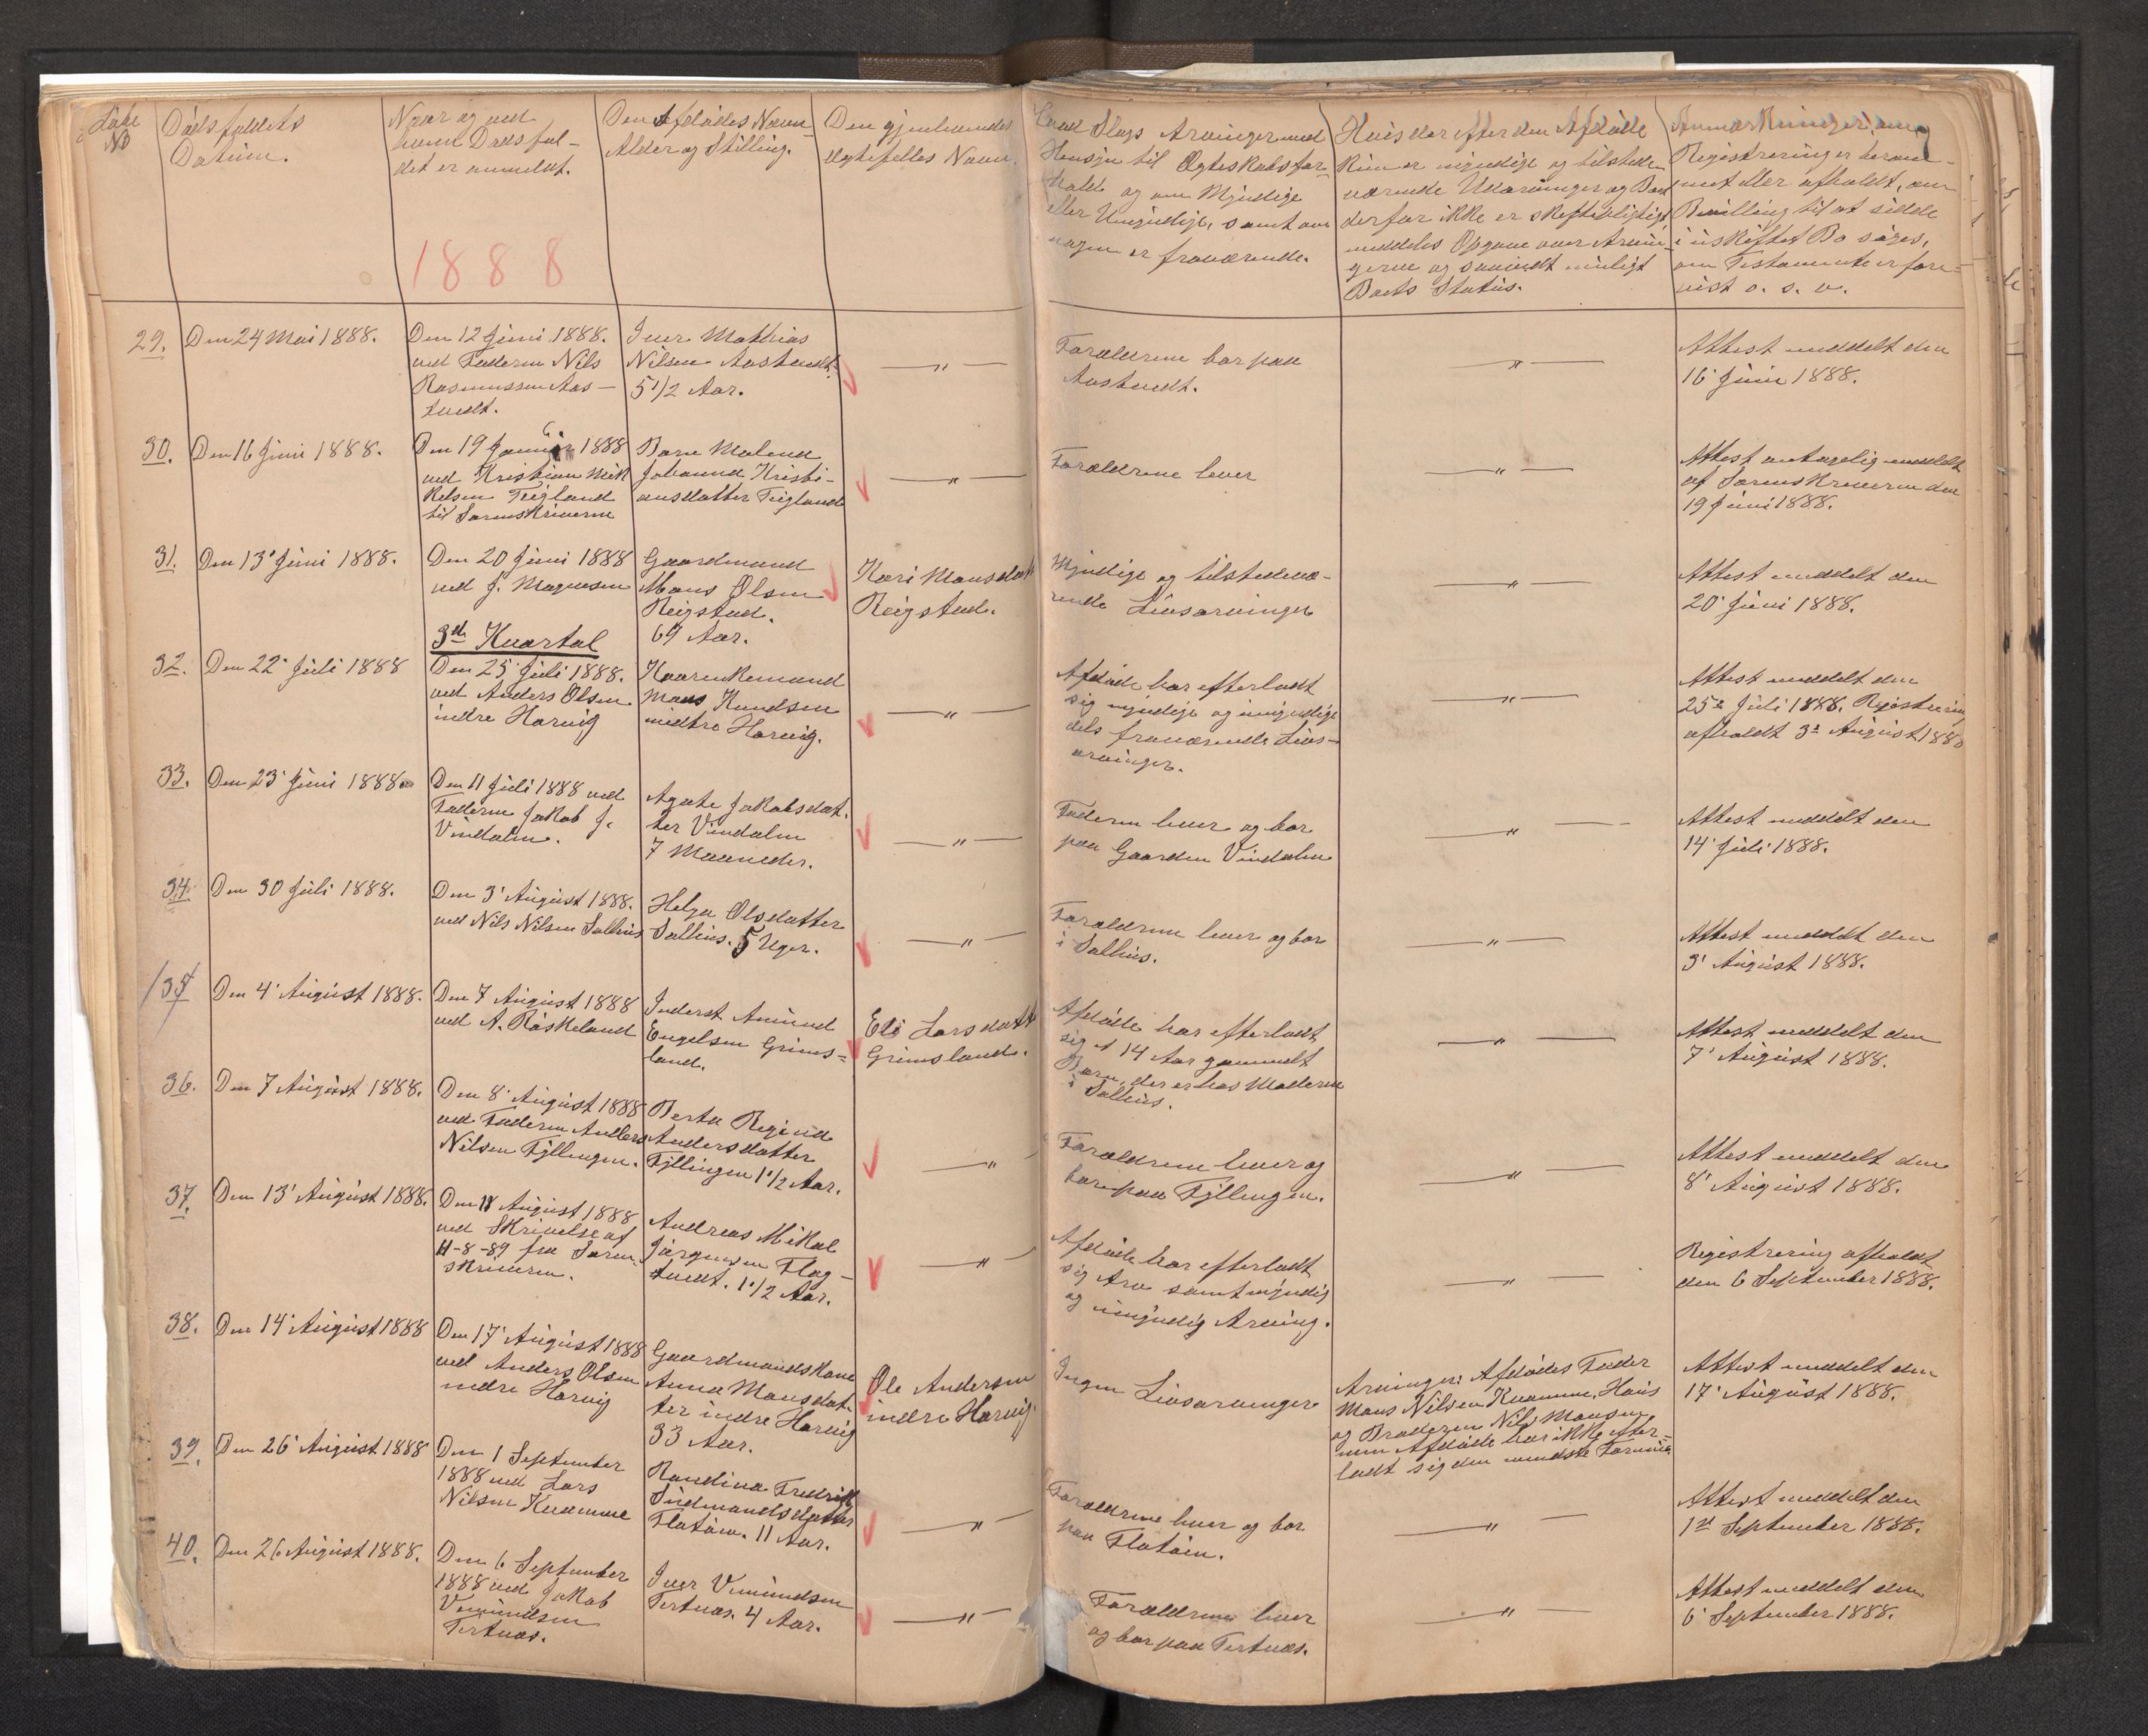 Løbe
No
Dødsfaldets
Datum.
Naar og ved
hvem Dødsfal-
det er anmeldt.
1888
Den Afdødes Navn
Alder og Stilling.
Den gjenlevendes
Ægtefælles Navn.
Hvad Slags Arvinger med
Hensyn til Ægteskabsfor-
hold og om Myndige
eller Umyndige, samt om
nogen er fraværende.
Hvis der efter den Afdøde
kun er myndige og tilstede-
værende Udarvinger og Boet
derfor ikke er skiftepligtigt,
meddeles Opgave over Arvin-
gerne og saavidt muligt
Boets Status.
Anmærkninger, om
Registrering er beram-
met eller afholdt, om
Bevilling til at sidde
i uskiftet Bo søges,
om Testamente er fore-
vist o. s. v.
29.
Den 24 Mai 1888.
Den 12 Juni 1888.
ved Faderen Nils
Rasmussen Aas-
tvedt.
Iver Mathias
Nilsen Aastvedt
5 1/2 Aar.
— " —
Forældrene bor paa
Aastvedt.
— " —
Attest meddelt den
16' Juni 1888.
30.
Den 16 Juni 1888.
Den 19 Juni 1888
ved Kristian Mik
kelsen Teigland
til Sorenskriveren
Barn Malena
Johanna Kristi-
ansdatter Teigland
— " —
Forældrene lever
— " —
Attest antagelig meddelt
af Sorenskriveren den
19 Juni 1888.
31.
Den 13' Juni 1888.
Den 20 Juni 1888
ved J. Magnesen
Gaardmand
Mons Olsen
Reigstad.
69 Aar.
Kari Monsdatt
Reigstad.
Myndige og tilstedevæ-
rende Livsarvinger
— " —
Attest meddelt den
20' Juni 1888.
3die Kvartal
32.
Den 22' Juli 1888
Den 25' Juli 1888.
ved Anders Olsen
indre Horvig
Kaarenkemand
Mons Knudsen
midtre Horvig.
— " —
Afdøde har efterladt
sig myndige og umyndige
dels fraværende Livs-
arvinger.
— " —
Attest meddelt den
25de Juli 1888. Registrering
afholdt 3de August 1888
33.
Den 23' Juni 1888
Den 11 Juli 1888 ved
Faderen Jakob J.
Vindalen.
Agate Jakobsdat-
ter Vindalen
7 Maaneder.
— " —
Faderen lever og bor
paa Gaarden Vindalen
— " —
Attest meddelt den
14' Juli 1888.
34.
Den 30 Juli 1888.
Den 3' August 1888.
ved Nils Nilsen Salhus
Helga Olsdatter
Salhus. 5 Uger.
— " —
Forældrene lever og bor
i Salhus.
— " —
Attest meddelt den
3' August 1888.
35
Den 4' August 1888.
Den 7 August 1888
ved A. Røskeland
Inderst Amund
Engelsen Grims-
land.
Eli Larsdatt
Grimsland.
Afdøde har efterladt
sig et 14 Aar gammelt
Barn, der er hos Moderen
i Salhus.
— " —
Attest meddelt den
7' August 1888.
36.
Den 7 August 1888.
Den 8' August 1888
ved Faderen Anders
Nilsen Fyllingen.
Berta Regine
Andersdatter
Fyllingen 1 1/2 Aar.
— " —
Forældrene lever og
bor paa Fyllingen.
— " —
Attest meddelt den
8' August 1888.
37.
Den 13' August 1888.
Den 11 August 1888
ved Skrivelse af
11-8-89 fra Soren-
skriveren.
Andreas Mikal
Jørgensen Flag-
tvedt. 1 1/2 Aar.
— " —
Afdøde har efterladt
sig Arv samt myndig
og umyndig Arving.
— " —
Registrering afholdt
den 6 September 1888.
38.
Den 14' August 1888
Den 17' August 1888
ved Anders Olsen
indre Horvig
Gaardmandskone
Anna Monsdat-
ter indre Horvig
33 Aar.
Ole Andersen
indre Horvig
Ingen Livsarvinger
Arvinger: Afdødes Fader
Mons Nilsen Kvamme, Haus
og Broderen Nils Monsen
men Afdøde har ikke efter-
ladt sig den mindste Formue
Attest meddelt den
17' August 1888.
39.
Den 26' August 1888
Den 1 September
1888 ved Lars
Nilsen Kvamme
Randina Fredrik
Sudmandsdatter
Flatøen. 11 Aar.
— " —
Forældrene lever og bor
paa Flatøen.
— " —
Attest meddelt den
1st September 1888.
40.
Den 26 August 1888.
Den 6 September
1888 ved Jakob
Vemundsen
Tertnæs.
Iver Vemundsen
Tertnæs. 4 Aar.
— " —
Forældrene lever
og bor paa Tertnæs.
— " —
Attest meddelt den
6' September 1888.